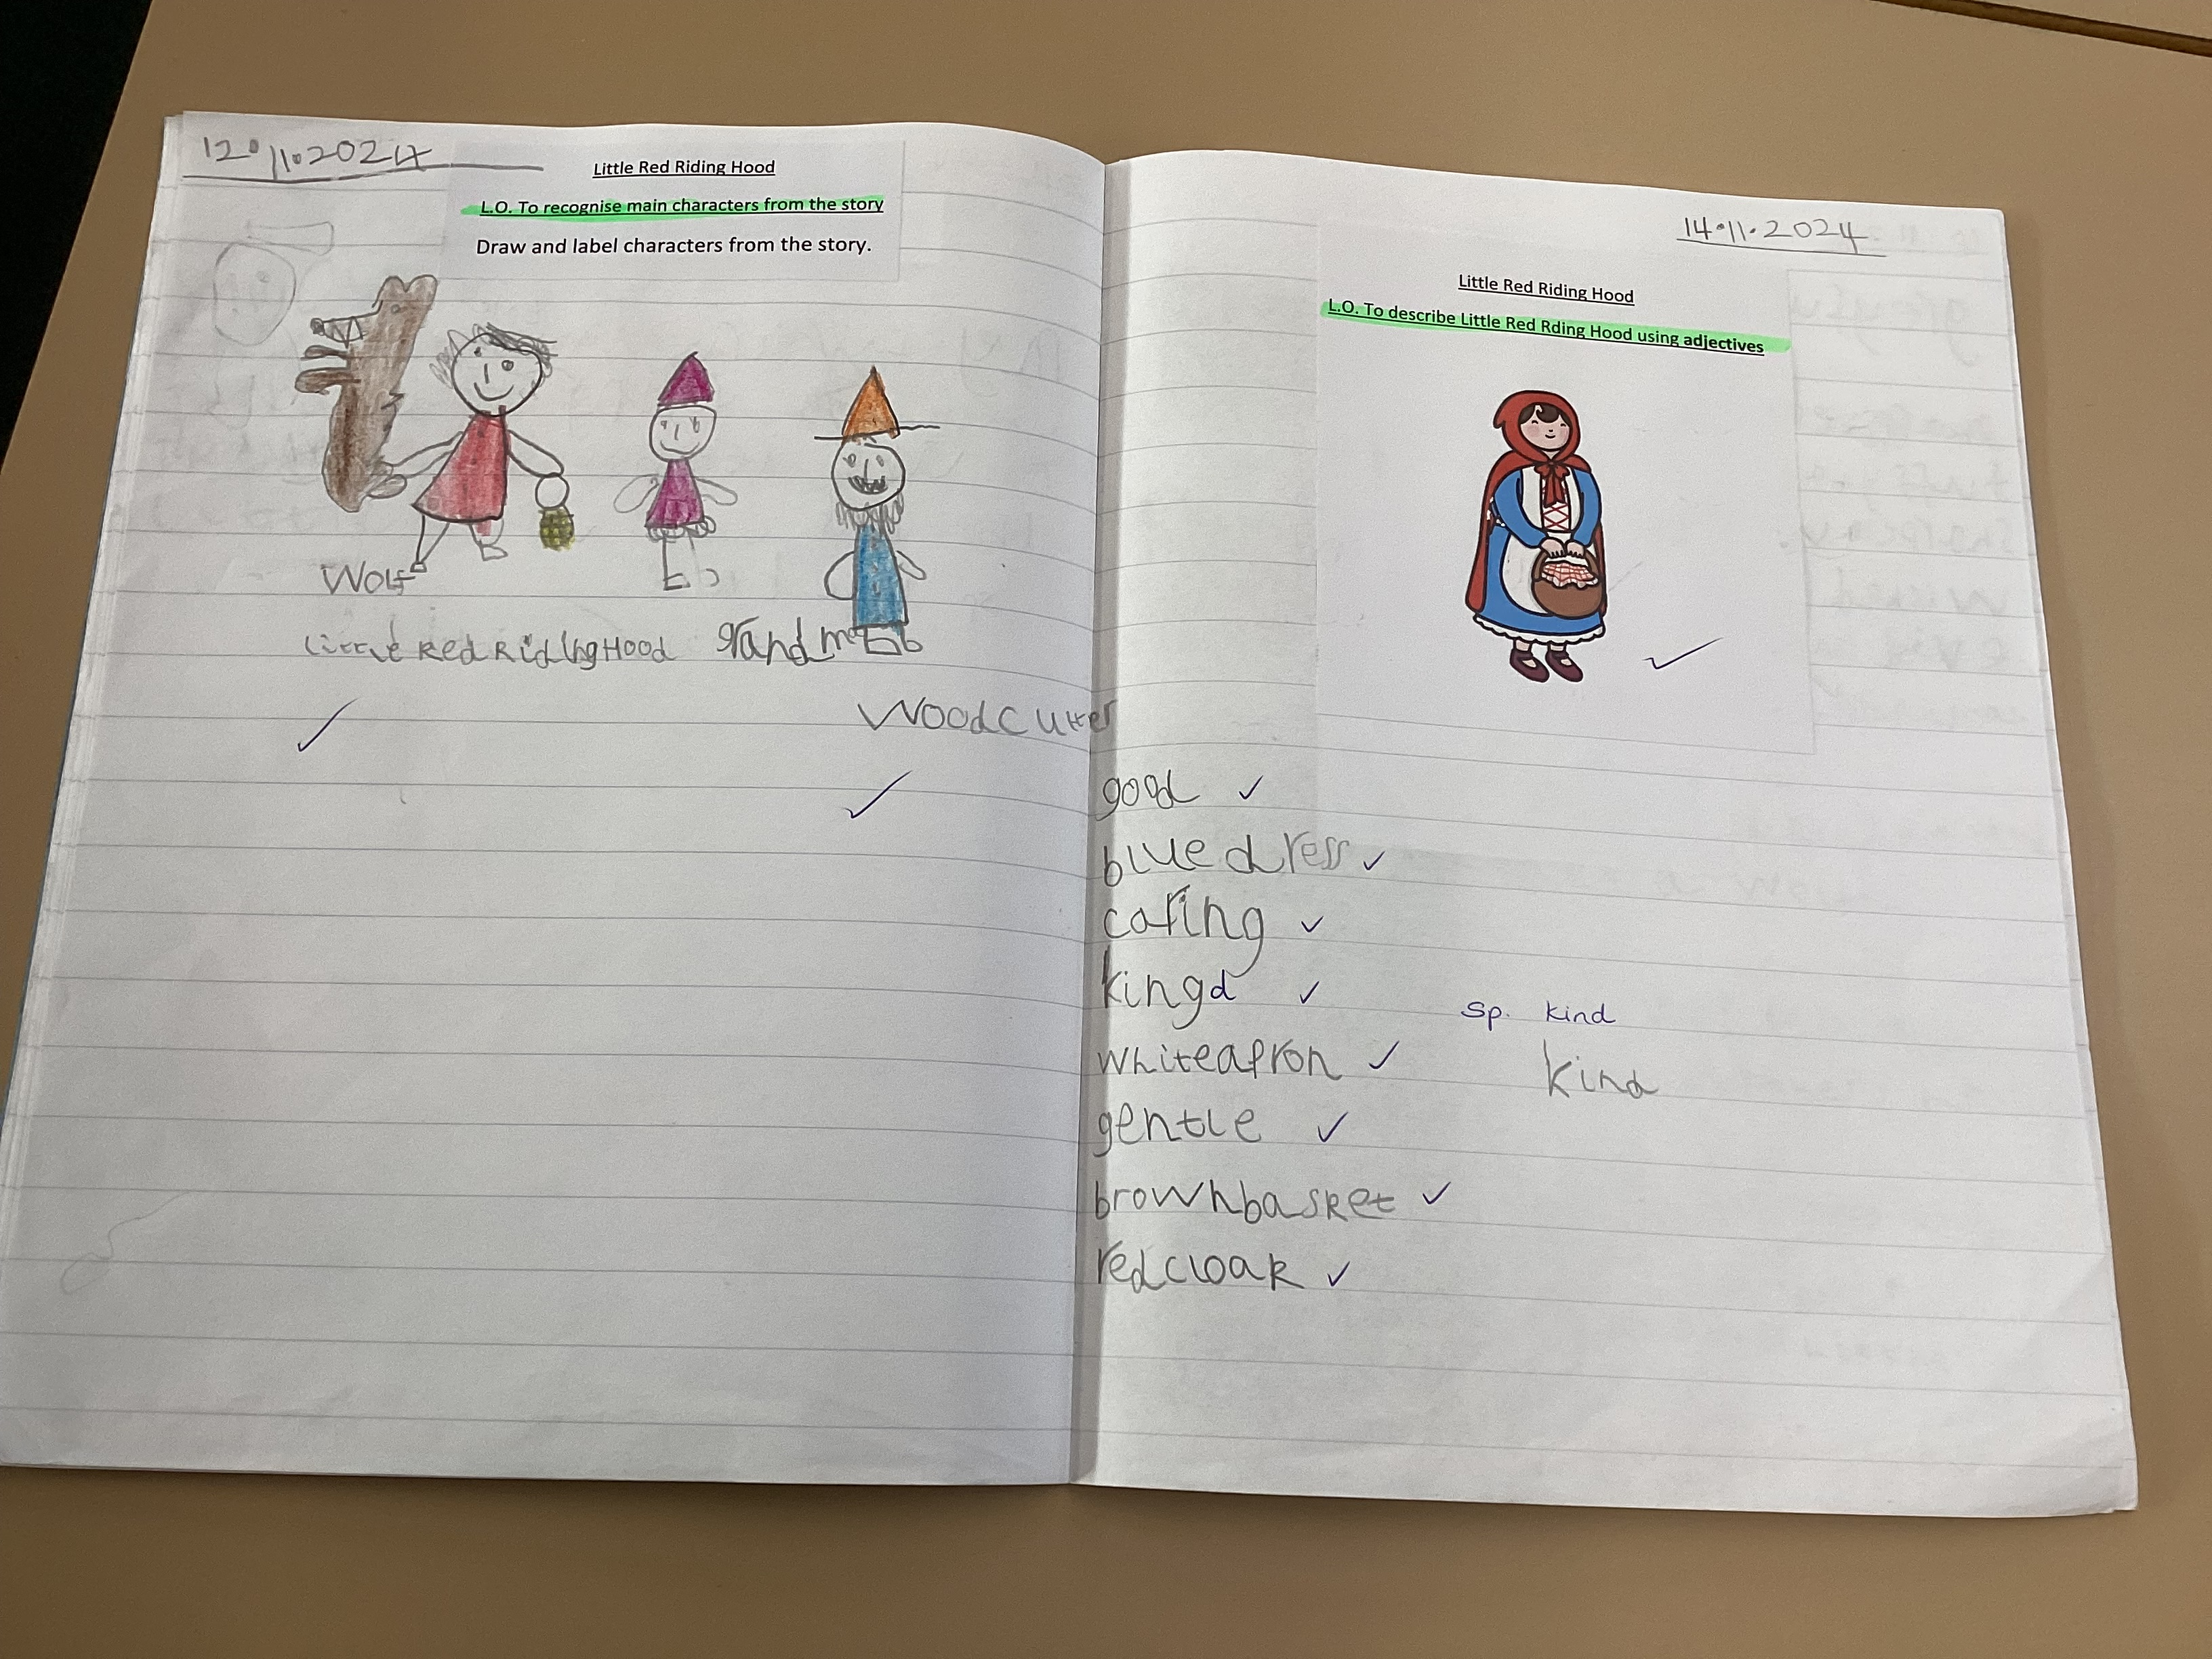 12.11.2024
Little Red Riding Hood
L.O. To recognise main characters from the story
Draw and label characters from the story.
Wolf
Little Red Riding Hood
grandma
Woodcutter
14.11.2024
Little Red Riding Hood
L.O. To describe Little Red Rding Hood using adjectives
good
blue dress
caring
kingd
Sp. kind
white apron
kind
gentle
brown basket
red cloak